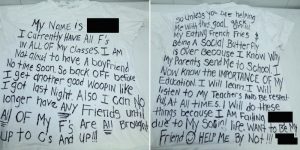 My NAME IS
I Currently HAVE ALL F's
IN ALL OF My Classes I Am
Not allud to Have A boyfriend
No time soon So back OFF before
I get another Good Whoopin like
I got last Night. Also I Can No
longer have ANY Friends until
All OF My F's Are All Brought
up to C's And up!!!
So unless you are helping
Me with the goal "BYE!"
My Eating French Fries &
Being A Social Butterfly
is Over Because I Know Why
My Parents Send Me to School I
Now Know the IMPORTANCE OF My
Education I Will Learn I Will
Listen to My Teachers And Be Respect-
ful At All Times. I Will do these
things because I Am Failing
due to My Social life. WANT to Be My
Friend HELP ME By Not !!!